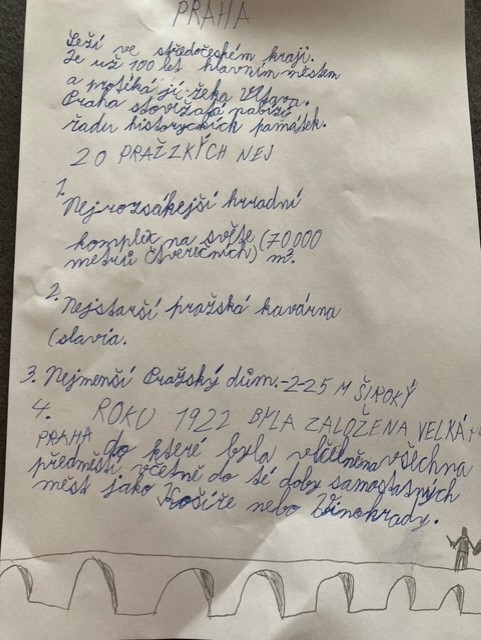 PRAHA
Leží ve středočeském kraji.
Je už 100 let hlavním městem
a protéká jí řeka Vltava.
Praha stověžatá nabízí
řadu historyckích památek.
20 PRAŽZKÝCH NEJ
1. Nejrozsákejší hradní
komplex na světe (70000
metrů čtverečních) m².
2. Nejstarší pražská kavárna
(slavia.
3. Nejmenší Pražský dům.-2-25 M ŠIROKÝ
4. ROKU 1922 BYLA ZALOŽENA VELKÁ
PRAHA do které byla včleněna všechna
předměstí včetně do té doby samostatných
měst jako Košíře nebo Vinohrady.